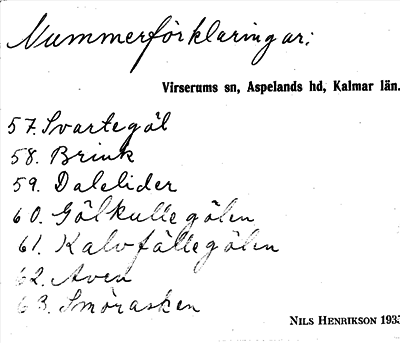 Nummerförklaringar:
Virserums sn, Aspelands hd, Kalmar län.
57. Svartegöl
58. Brink
59. Dalelider
60. Gölkullegölen
61. Kalvfällegölen
62. Aven
63. Smörasken
NILS HENRIKSON 1933